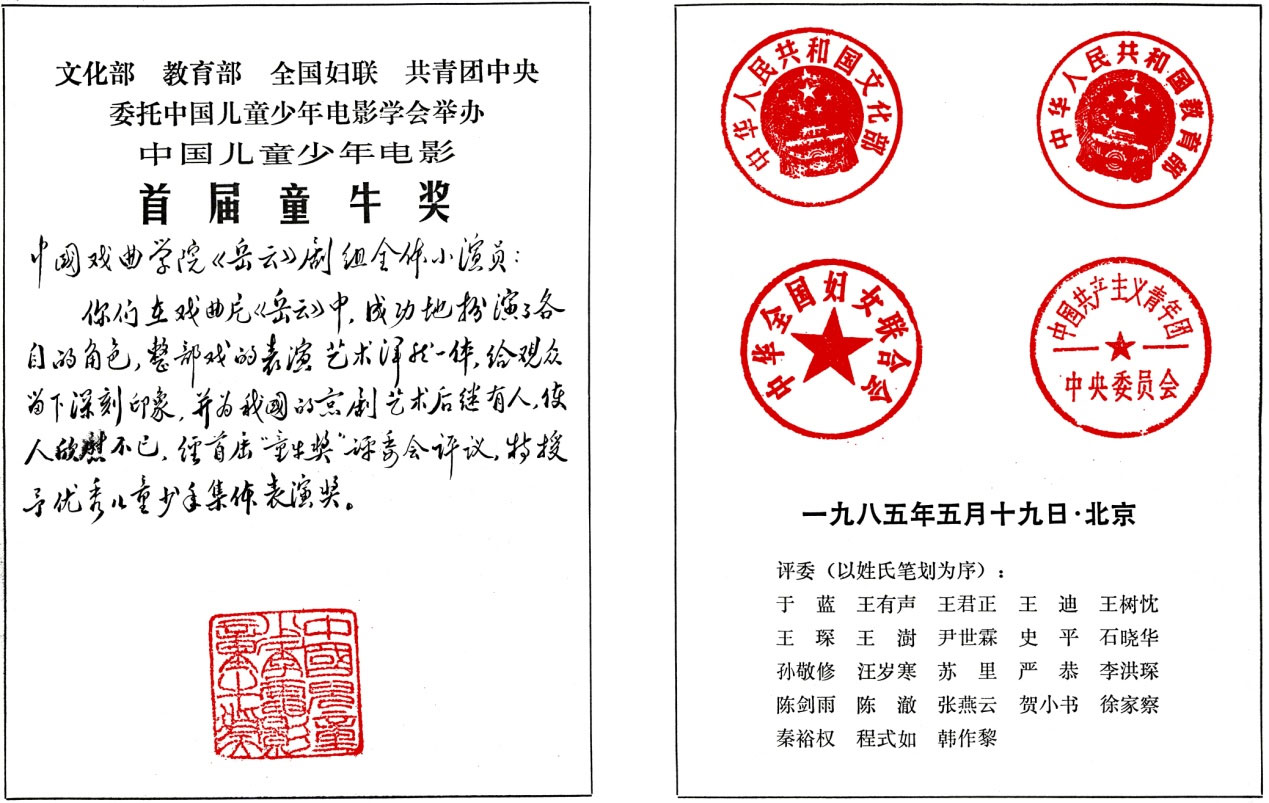 文化部 教育部 全国妇联 共青团中央
委托中国儿童少年电影学会举办
中国儿童少年电影
首届童牛奖
中國戏曲学院《岳云》剧组全体小演员：
你们在戏曲片《岳云》中，成功地扮演了各
自的角色，整部戏的表演艺术浑然一体，给观众
留下深刻印象，并为我國的京剧艺术后继有人，使
人欣慰不已，经首届“童牛奖”评委会评议，特授
予优秀儿童少年集体表演奖。
中國儿童
少年電影
童牛奖
中华人民共和国文化部
中华人民共和国教育部
中华全国妇女联合会
中国共产主义青年团
中央委员会
一九八五年五月十九日·北京
评委（以姓氏笔划为序）：
于 蓝 王有声 王君正 王 迪 王树忱
王 琛 王 澍 尹世霖 史 平 石晓华
孙敬修 汪岁寒 苏 里 严 恭 李洪琛
陈剑雨 陈 澈 张燕云 贺小书 徐家察
秦裕权 程式如 韩作黎